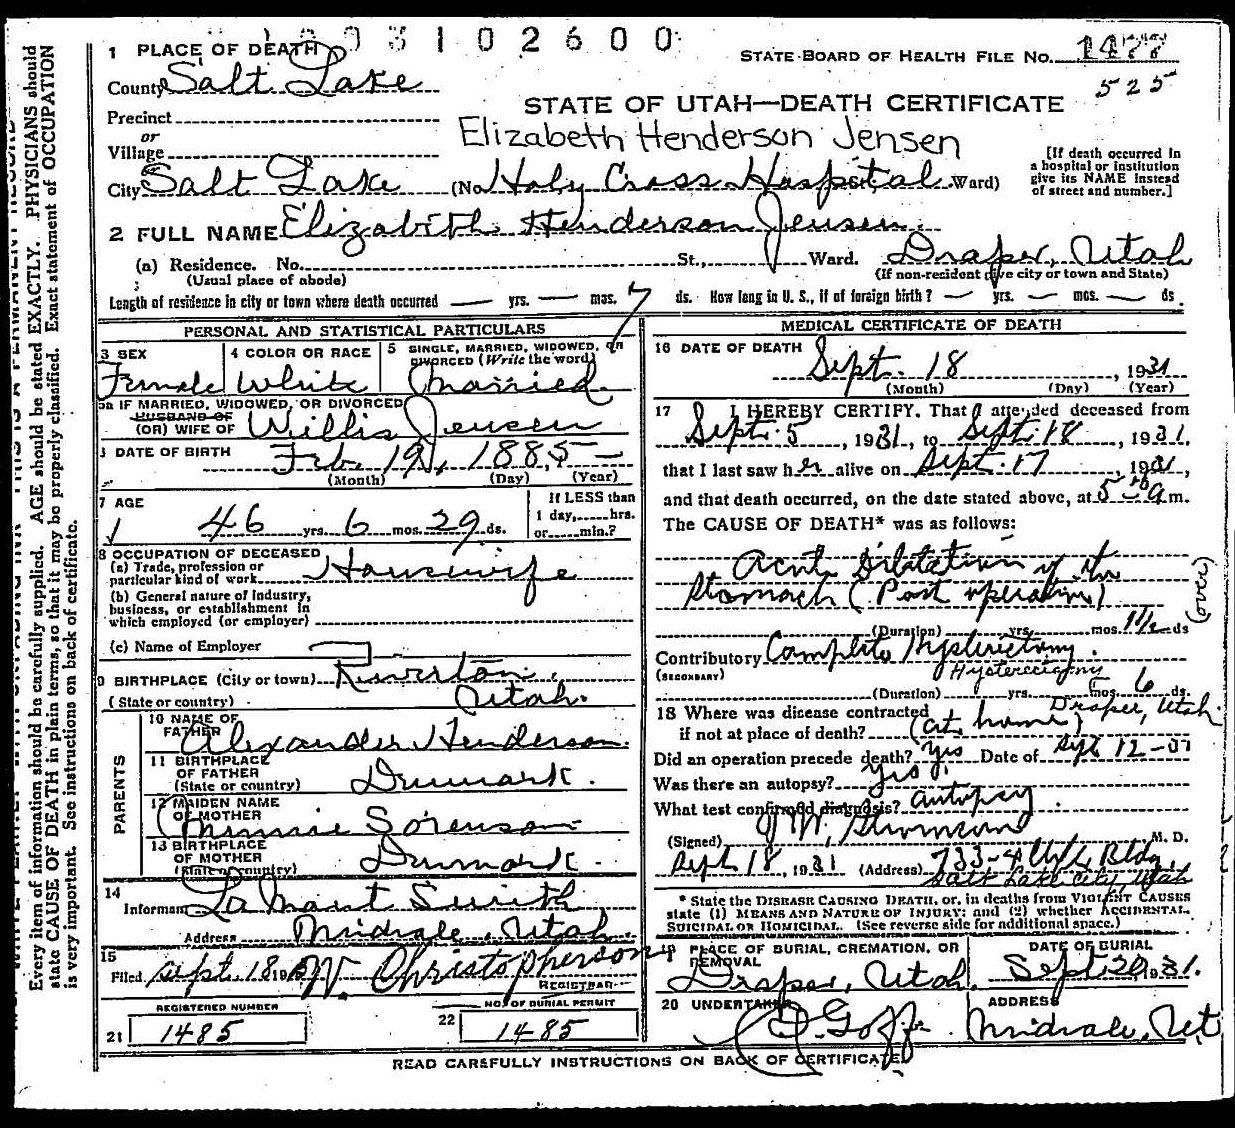 1003102600
1 PLACE OF DEATH
STATE BOARD OF HEALTH FILE No. 1477
County Salt Lake
525
STATE OF UTAH—DEATH CERTIFICATE
Precinct
or
Village
Elizabeth Henderson Jensen
[If death occurred in a hospital or institution give its NAME instead of street and number.]
City Salt Lake (No. Holy Cross Hospital Ward)
2 FULL NAME Elizabeth Henderson Jensen.
(a) Residence. No. St., Ward. Draper, Utah
(Usual place of abode) (If non-resident give city or town and State)
Length of residence in city or town where death occurred — yrs. — mos. 7 ds. How long in U. S., if of foreign birth? — yrs. — mos. — ds.
PERSONAL AND STATISTICAL PARTICULARS
3 SEX
Female
4 COLOR OR RACE
White
5 SINGLE, MARRIED, WIDOWED, OR DIVORCED (Write the word)
Married
5a IF MARRIED, WIDOWED, OR DIVORCED
HUSBAND OF
(OR) WIFE OF Willis Jensen
DATE OF BIRTH Feb. 19, 1885
(Month) (Day) (Year)
7 AGE
46 yrs. 6 mos. 29 ds.
If LESS than
1 day, hrs.
or min.?
8 OCCUPATION OF DECEASED
(a) Trade, profession or
particular kind of work Housewife
(b) General nature of industry,
business, or establishment in
which employed (or employer)
(c) Name of Employer
9 BIRTHPLACE (City or town) Riverton,
(State or country) Utah.
PARENTS
10 NAME OF FATHER Alexander Henderson.
11 BIRTHPLACE OF FATHER
(State or country) Denmark.
12 MAIDEN NAME OF MOTHER Minnie Sorenson
13 BIRTHPLACE OF MOTHER
(State or country) Denmark.
14
Informant LaMont Smith
Address Midvale, Utah.
15
Filed Sept. 18 19 W. Christopherson
REGISTRAR
REGISTERED NUMBER
21 1485
NO. OF BURIAL PERMIT
22 1485
MEDICAL CERTIFICATE OF DEATH
16 DATE OF DEATH
Sept. 18, 1931
(Month) (Day) (Year)
17 I HEREBY CERTIFY, That I attended deceased from
Sept. 5, 1931, to Sept. 18, 1931.
that I last saw her alive on Sept. 17 1931,
and that death occurred, on the date stated above, at a m.
The CAUSE OF DEATH* was as follows:
Acute Dilatation of the
Stomach (Post operation)
(over)
(Duration) yrs. mos. 1 1/2 ds
Contributory Complete Hysterectomy.
(SECONDARY) Hysterectomy
(Duration) yrs. mos. 6 ds.
18 Where was disease contracted Draper, Utah.
if not at place of death? (at home)
Did an operation precede death? Yes Date of Sept 12-31
Was there an autopsy? Yes.
What test confirmed diagnosis? autopsy.
(Signed) M. D.
Sept 18, 1931 (Address) Bldg.
Salt Lake City, Utah
* State the DISEASE CAUSING DEATH, or, in deaths from VIOLENT CAUSES
state (1) MEANS AND NATURE OF INJURY; and (2) whether ACCIDENTAL,
SUICIDAL OR HOMICIDAL. (See reverse side for additional space.)
19 PLACE OF BURIAL, CREMATION, OR REMOVAL
Draper, Utah.
DATE OF BURIAL
Sept. 20, 1931.
20 UNDERTAKER
Goff
ADDRESS
Midvale, Ut
READ CAREFULLY INSTRUCTIONS ON BACK OF CERTIFICATE
Every item of information should be carefully supplied. AGE should be stated EXACTLY. PHYSICIANS should
state CAUSE OF DEATH in plain terms, so that it may be properly classified. Exact statement of OCCUPATION
is very important. See instructions on back of certificate.